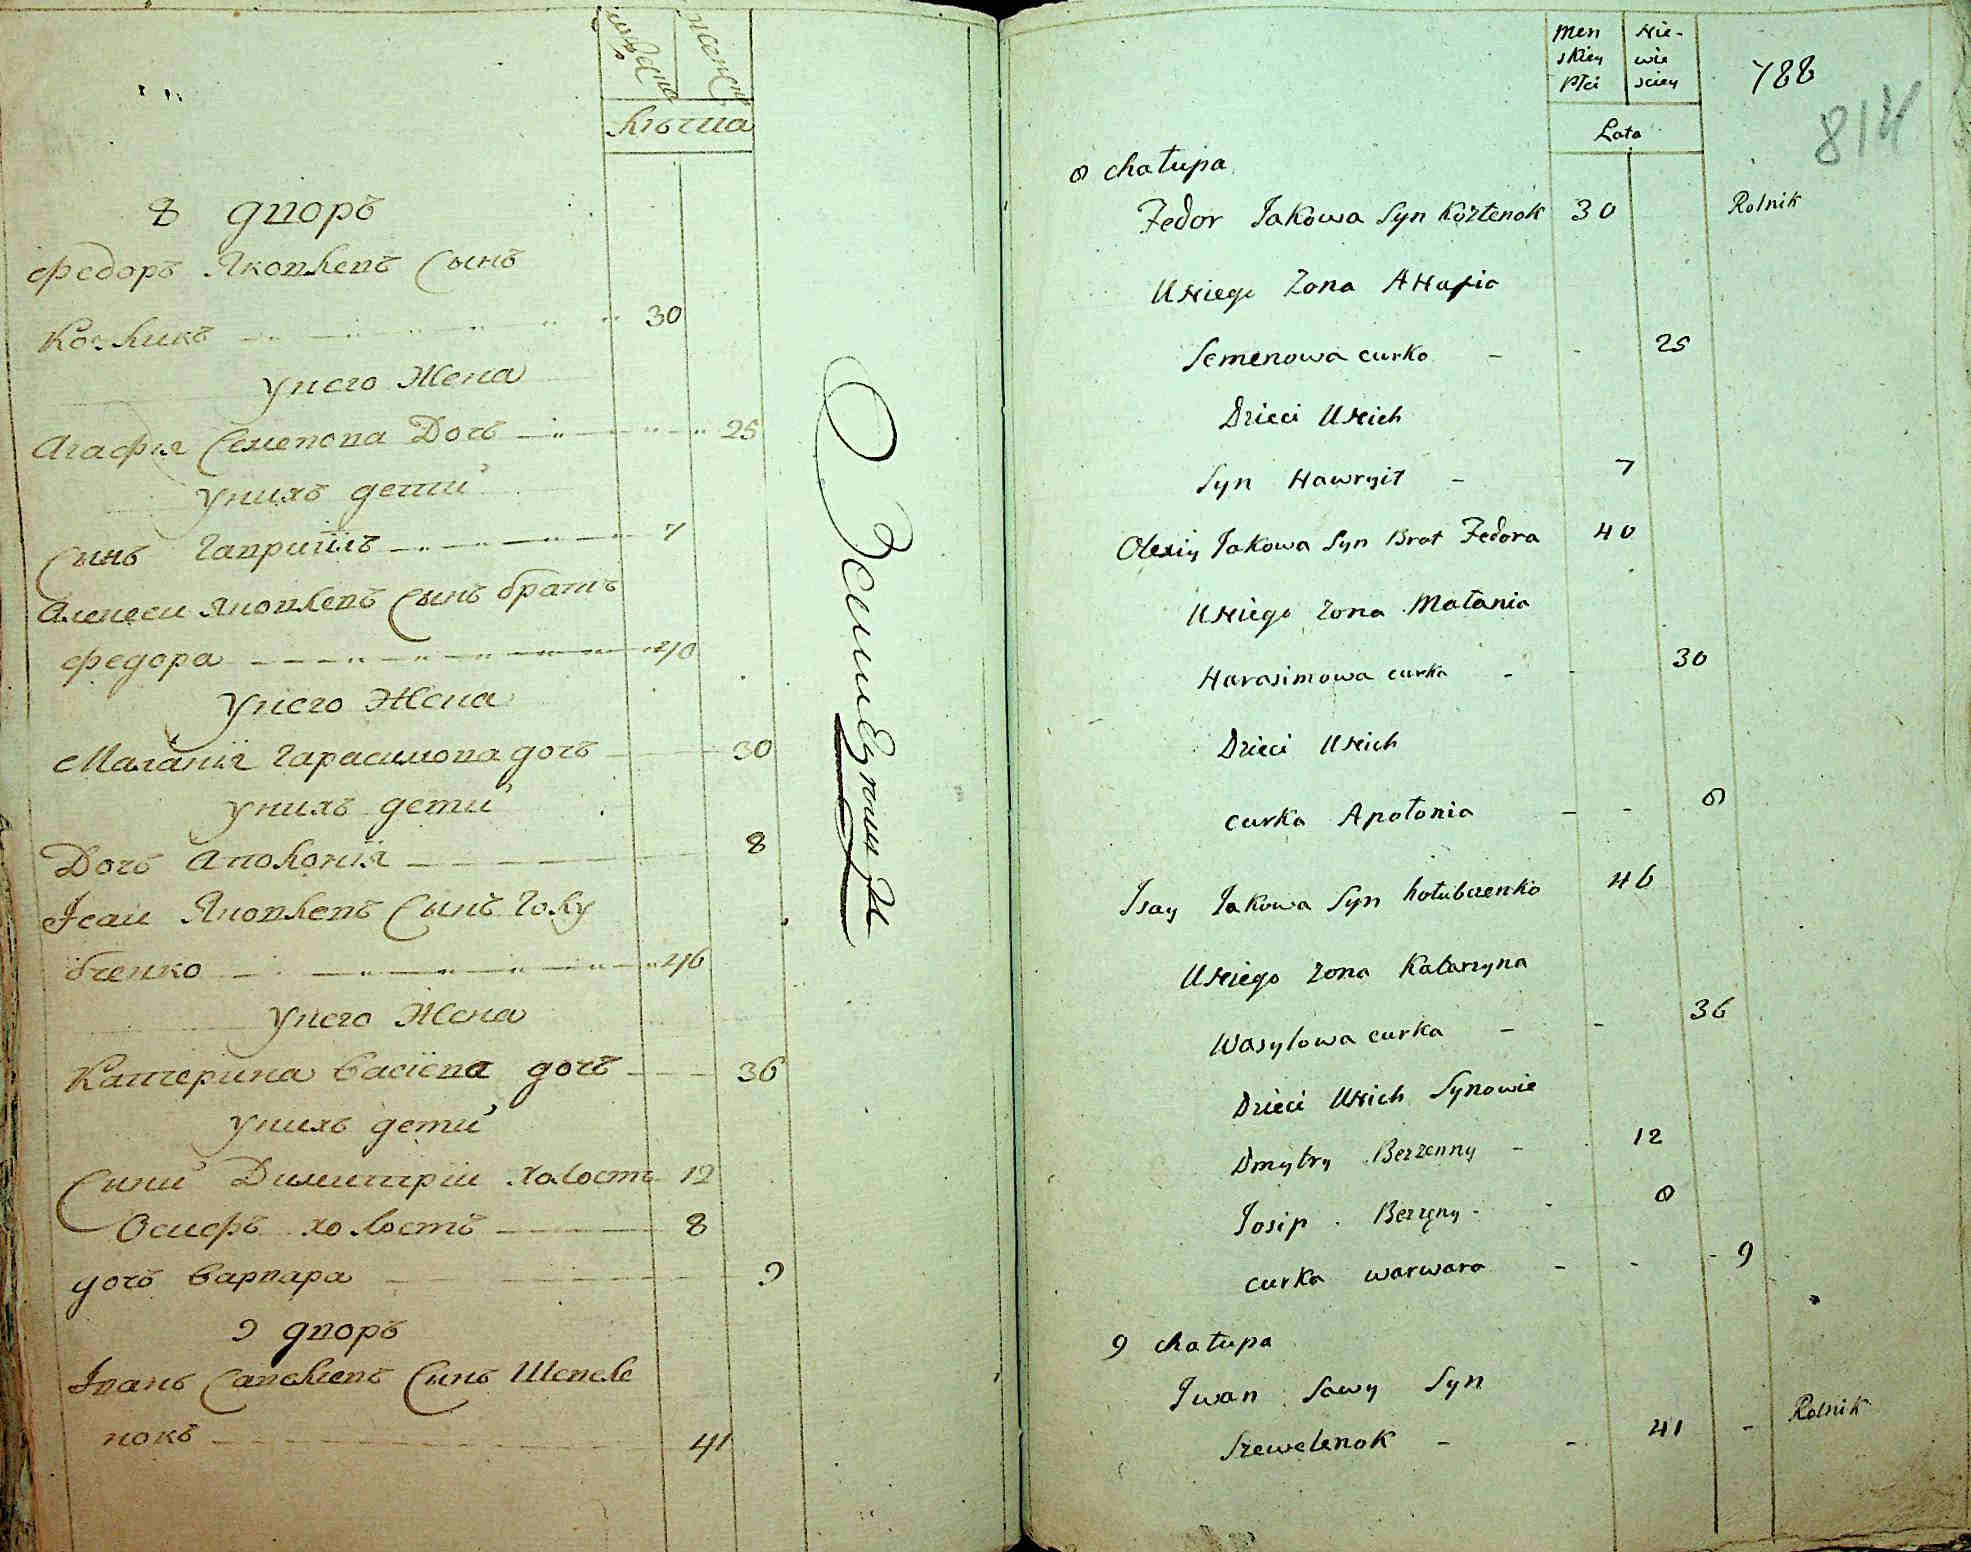 мужеска
женска
лѣта
8 дворъ
Федоръ Яковлевъ Сынъ
Козликъ 30
унего Жена
Агафия Семенова Дочъ 25
унихъ дети
Сынъ Гавриилъ 7
Алексеи Яковлевъ Сынъ братъ
Федора 40
унего Жена
Маланiя Гарасимова дочъ 30
унихъ дети
Дочъ Аполонiя 8
Iсаи Яковлевъ Сынъ Голу
бченко 46
унего Жена
Катерина Васiева дочъ 36
унихъ дети
Сини Димитрiи холостъ 12
Осифъ холостъ 8
дочъ Варвара 9
9 дворъ
Iванъ Савелиевъ Синъ Шевеле
нокъ 41
Men Nie-
skiey wie
Płci sciey
788
814
Lata
8 chałupa
Fedor Jakowa Syn Kozłenok 30 Rolnik
U Niego Zona AHafia
Semenowa curka - - 25
Dzieci U Nich
Syn Hawryił - 7
Olexiy Jakowa Syn Brat Fedora 40
U Niego Zona Małania
Harasimowa curka - - 30
Dzieci U Nich
curka Apołonia - - 8
Isay Jakowa Syn hołubczenko 46
U Niego Zona Katarzyna
Wasylowa curka - - 36
Dzieci U Nich Synowie
Dmytry Bezzenny - 12
Josip Bezzęny - 8
curka warwara - - - 9
9 chałupa
Iwan Sawy Syn
Szewelenok - - 41 - Rolnik